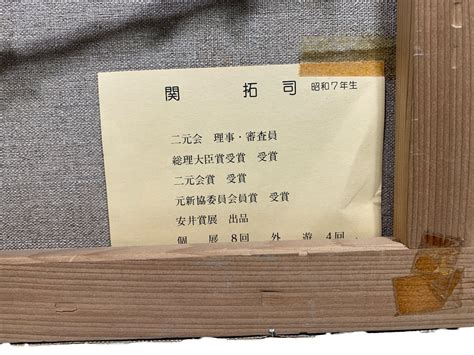 関 拓司 昭和7年生
二元会 理事・審査員
総理大臣賞受賞 受賞
二元会賞 受賞
元新協委員会員賞 受賞
安井賞展 出品
個 展 8回 外 遊 4回